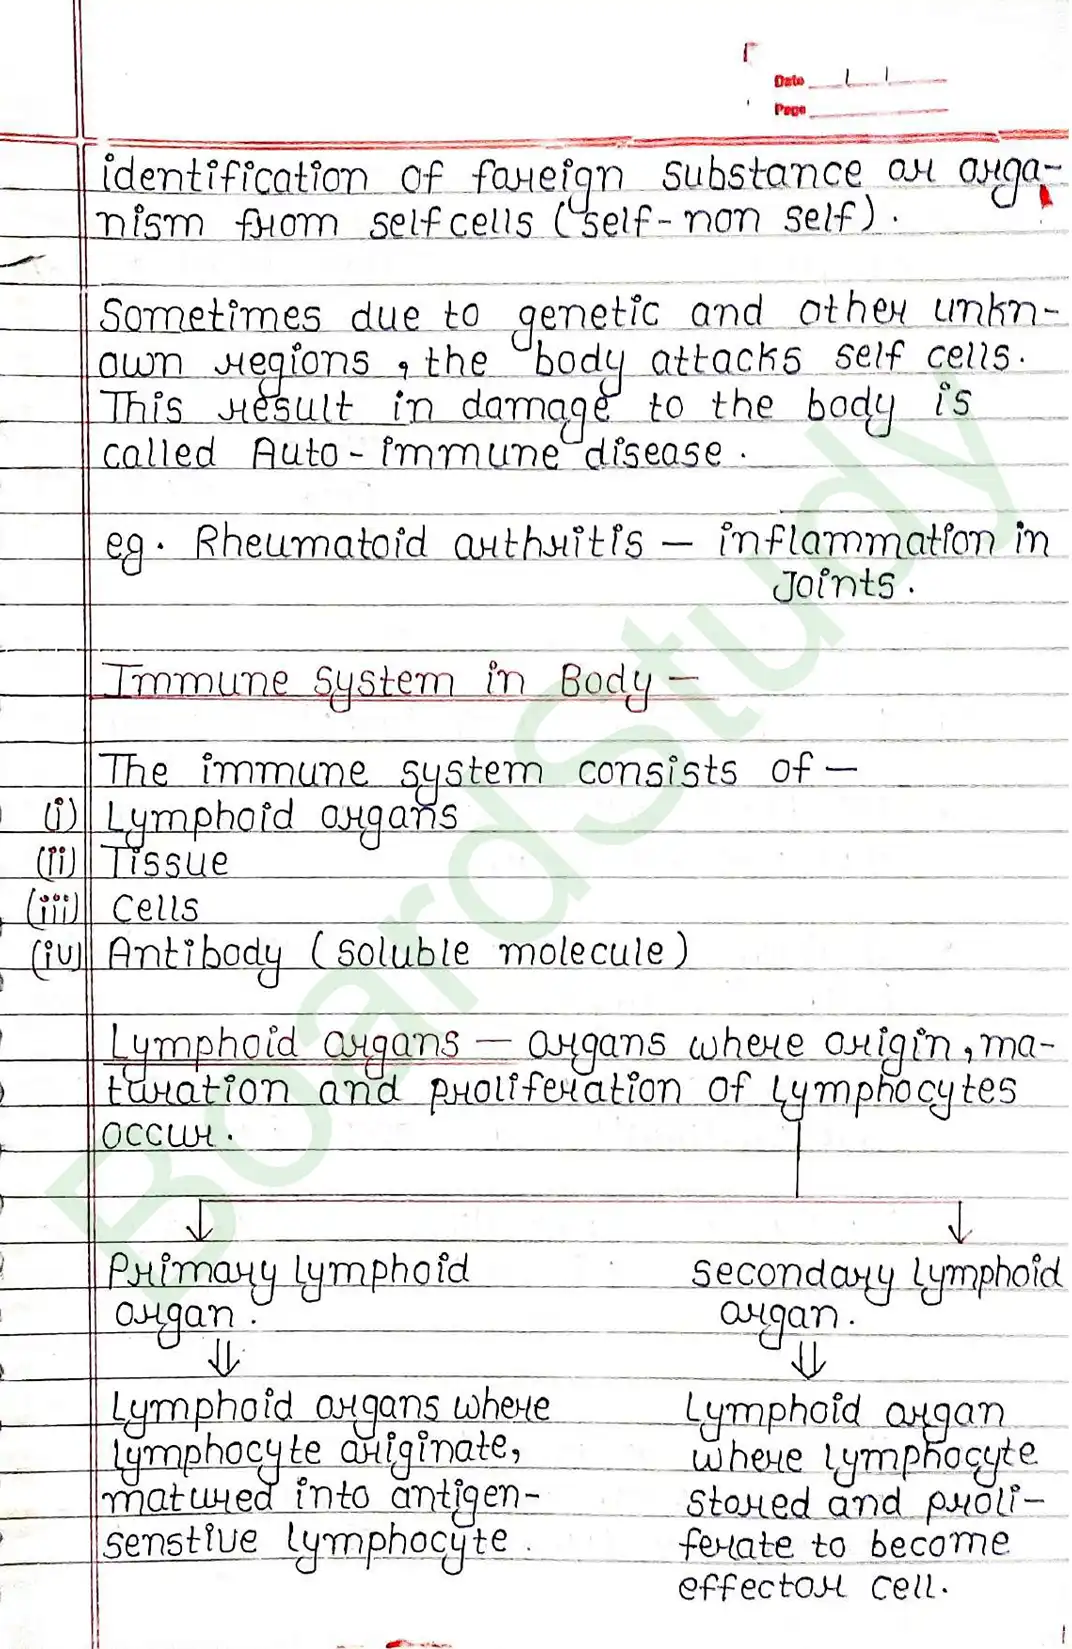 Date
Page
identification of foreign substance or orga-
nism from self cells (self-non self).
Sometimes due to genetic and other unkn-
own regions, the body attacks self cells.
This result in damage to the body is
called Auto-immune disease.
eg. Rheumatoid arthritis — inflammation in
Joints.
Immune System in Body —
The immune system consists of —
(i) Lymphoid organs
(ii) Tissue
(iii) Cells
(iv) Antibody (soluble molecule)
Lymphoid organs — organs where origin, ma-
turation and proliferation of lymphocytes
occur.
Primary lymphoid
organ.
secondary lymphoid
organ.
Lymphoid organs where
lymphocyte originate,
matured into antigen-
senstive lymphocyte.
Lymphoid organ
where lymphocyte
stored and proli-
ferate to become
effector cell.
BoardStudy